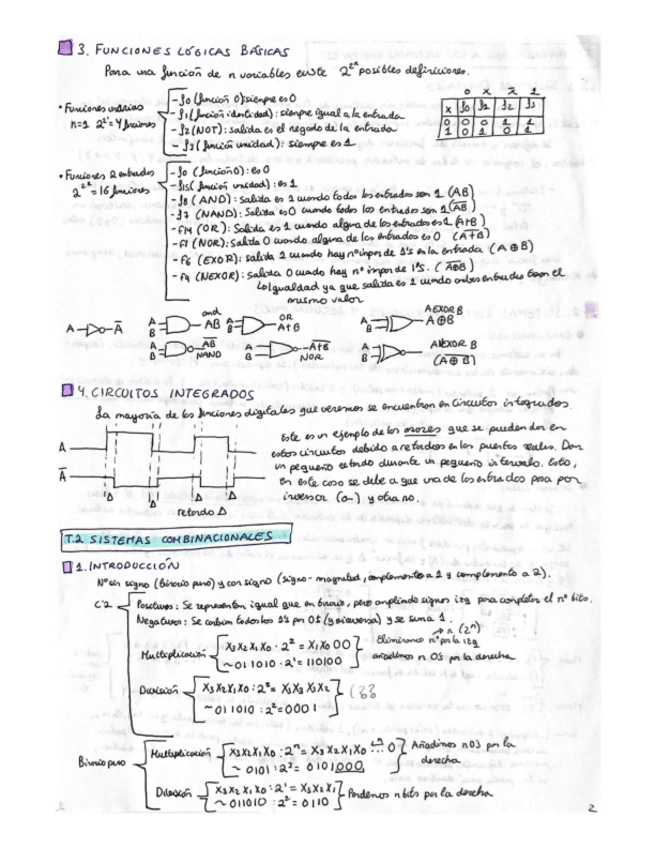 3. FUNCIONES LÓGICAS BÁSICAS
Para una función de n variables existe 2^2^n posibles definiciones.
• Funciones unarias
n=1 2^2^1=4 funciones
- f0 (función 0): siempre es 0
- f1 (función identidad): siempre igual a la entrada
- f2 (NOT): salida es el negado de la entrada
- f3 (función unidad): siempre es 1
0 x x̄ 1
x f0 f1 f2 f3
0 0 0 1 1
1 0 1 0 1
• Funciones 2 entradas
2^2^2=16 funciones
- f0 (función 0): es 0
- f15 (función unidad): es 1
- f8 (AND): Salida es 1 cuando todas las entradas son 1 (AB)
- f7 (NAND): Salida es 0 cuando todas las entradas son 1 (A̅B̅)
- f14 (OR): Salida es 1 cuando alguna de las entradas es 1 (A+B)
- f1 (NOR): Salida 0 cuando alguna de las entradas es 0 (A̅+̅B̅)
- f6 (EXOR): salida 1 cuando hay nº impar de 1's en la entrada (A ⊕ B)
- f9 (NEXOR): Salida 0 cuando hay nº impar de 1's. (A̅⊕̅B̅)
Igualdad ya que salida es 1 cuando ambas entradas tienen el
mismo valor
A Ā
A B and AB
A B OR A+B
A B AEXOR B A⊕B
A B A̅B̅ NAND
A B A̅+̅B̅ NOR
A B ANEXOR B (A̅⊕̅B̅)
4. CIRCUITOS INTEGRADOS
La mayoría de las funciones digitales que veremos se encuentran en circuitos integrados.
A
Ā
Δ Δ Δ Δ
retardo Δ
Este es un ejemplo de los errores que se pueden dar en
estos circuitos debido a retardos en las puertas reales. Dan
un pequeño retardo durante un pequeño intervalo. Esto,
en este caso se debe a que una de las entradas pasa por
inversor (o-) y otra no.
T.2 SISTEMAS COMBINACIONALES
1. INTRODUCCIÓN
Nº sin signo (Binario puro) y con signo (signo-magnitud, complemento a 1 y complemento a 2).
C'2
Positivos: Se representan igual que en binario, pero ampliando signos izq para completar el nº bits.
Negativos: Se cambian todos los 1's por 0s (y viceversa) y se suma 1.
Multiplicación
X3 X2 X1 X0 · 2^2 = X1 X0 0 0
~ 011010 · 2^1 = 110100
n (2^n)
Eliminamos nº por la izq
añadimos n 0S por la derecha
División
X3 X2 X1 X0 : 2^2 = X3 X3 X3 X2
~ 011010 : 2^2 = 0001
(??
Binario puro
Multiplicación
X3 X2 X1 X0 : 2^n = X3 X2 X1 X0 ... 0
~ 0101 : 2^3 = 0101000
Añadimos n 0S por la
derecha
División
X3 X2 X1 X0 : 2^1 = X3 X2 X1
~ 011010 : 2^2 = 0110
Perdemos n bits por la derecha
2